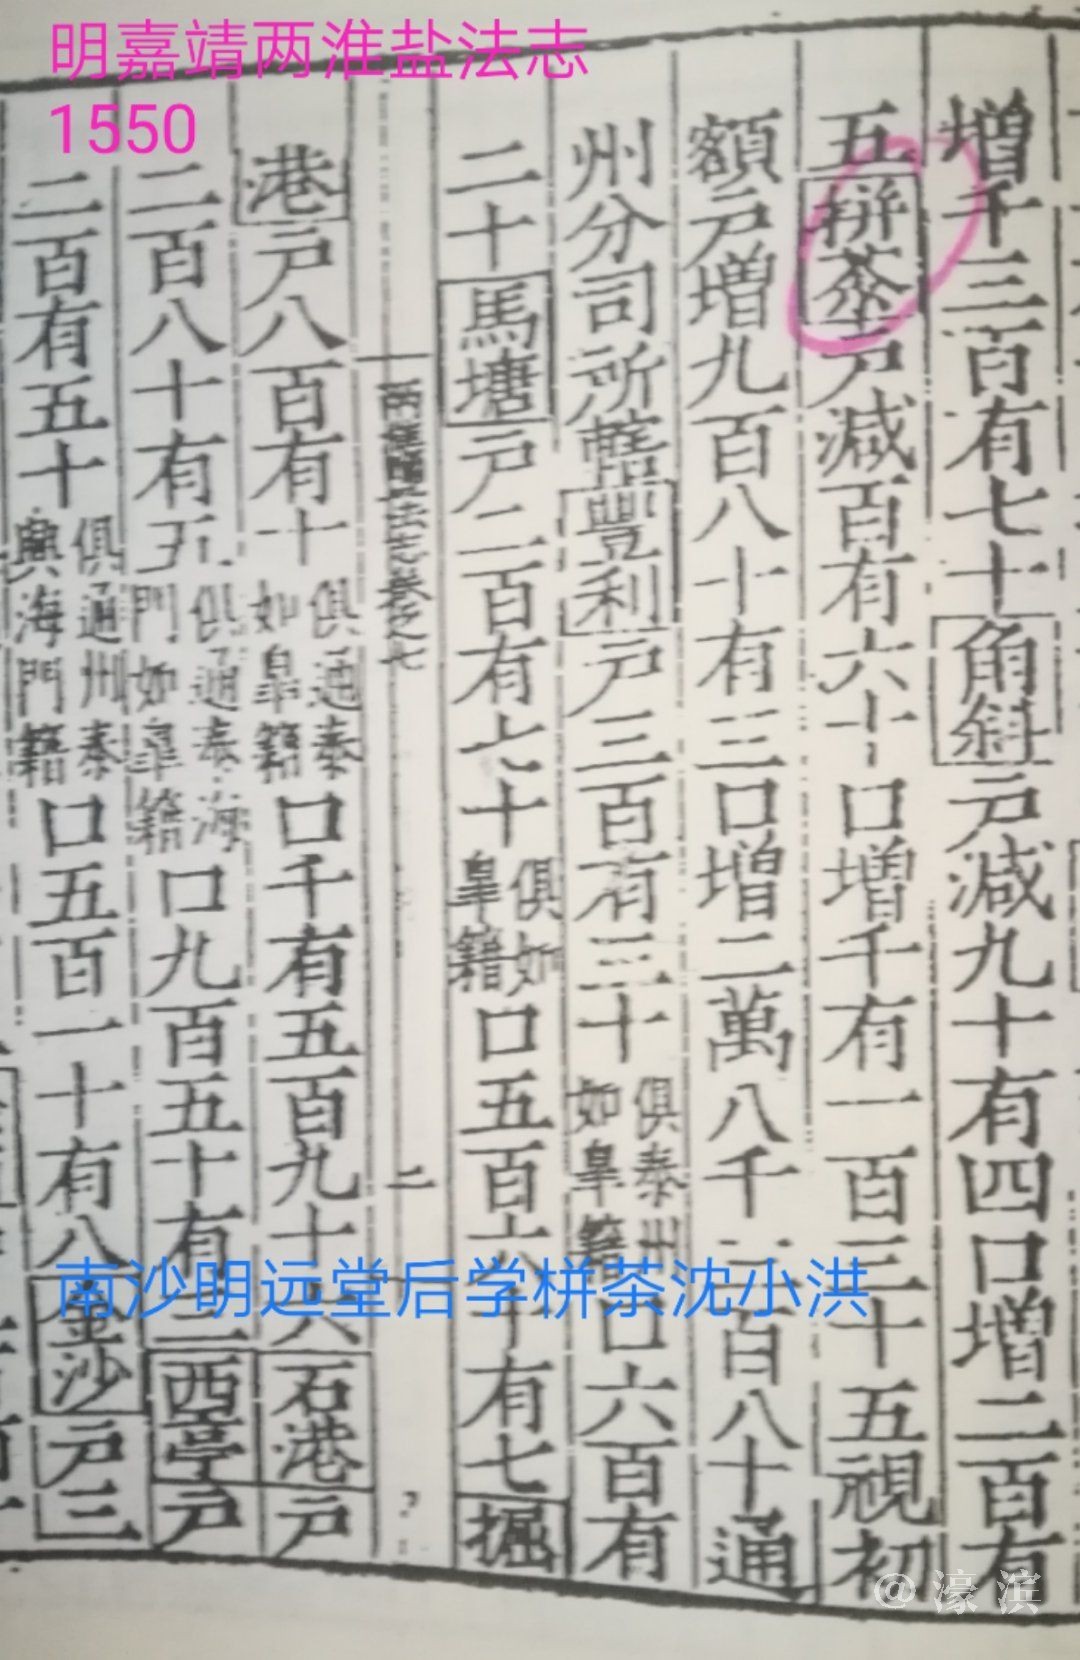 明嘉靖两淮盐法志
1550
増千三百有七十角斜戸減九十有四口増二百有
五栟茶戸減百有六十口増千有一百三十五視初
額戸増九百八十有三口増二萬八千一百八十通
州分司所轄豐利戸三百有三十俱泰州如臯籍口六百有
二十馬塘戸二百有七十俱如臯籍口五百六十有七掘
兩淮鹽法志卷之七 二
港戸八百有十俱通泰如臯籍口千有五百九十六石港戸
二百八十有五俱通泰海門如臯籍口九百五十有二西亭戸
二百有五十俱通州泰興海門籍口五百一十有八金沙戸三
南沙明远堂后学栟茶沈小洪
@濠滨